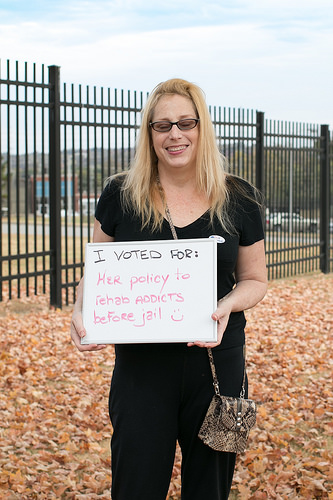 I VOTED FOR:
HER policy to
rehab ADDICTS
before jail :)